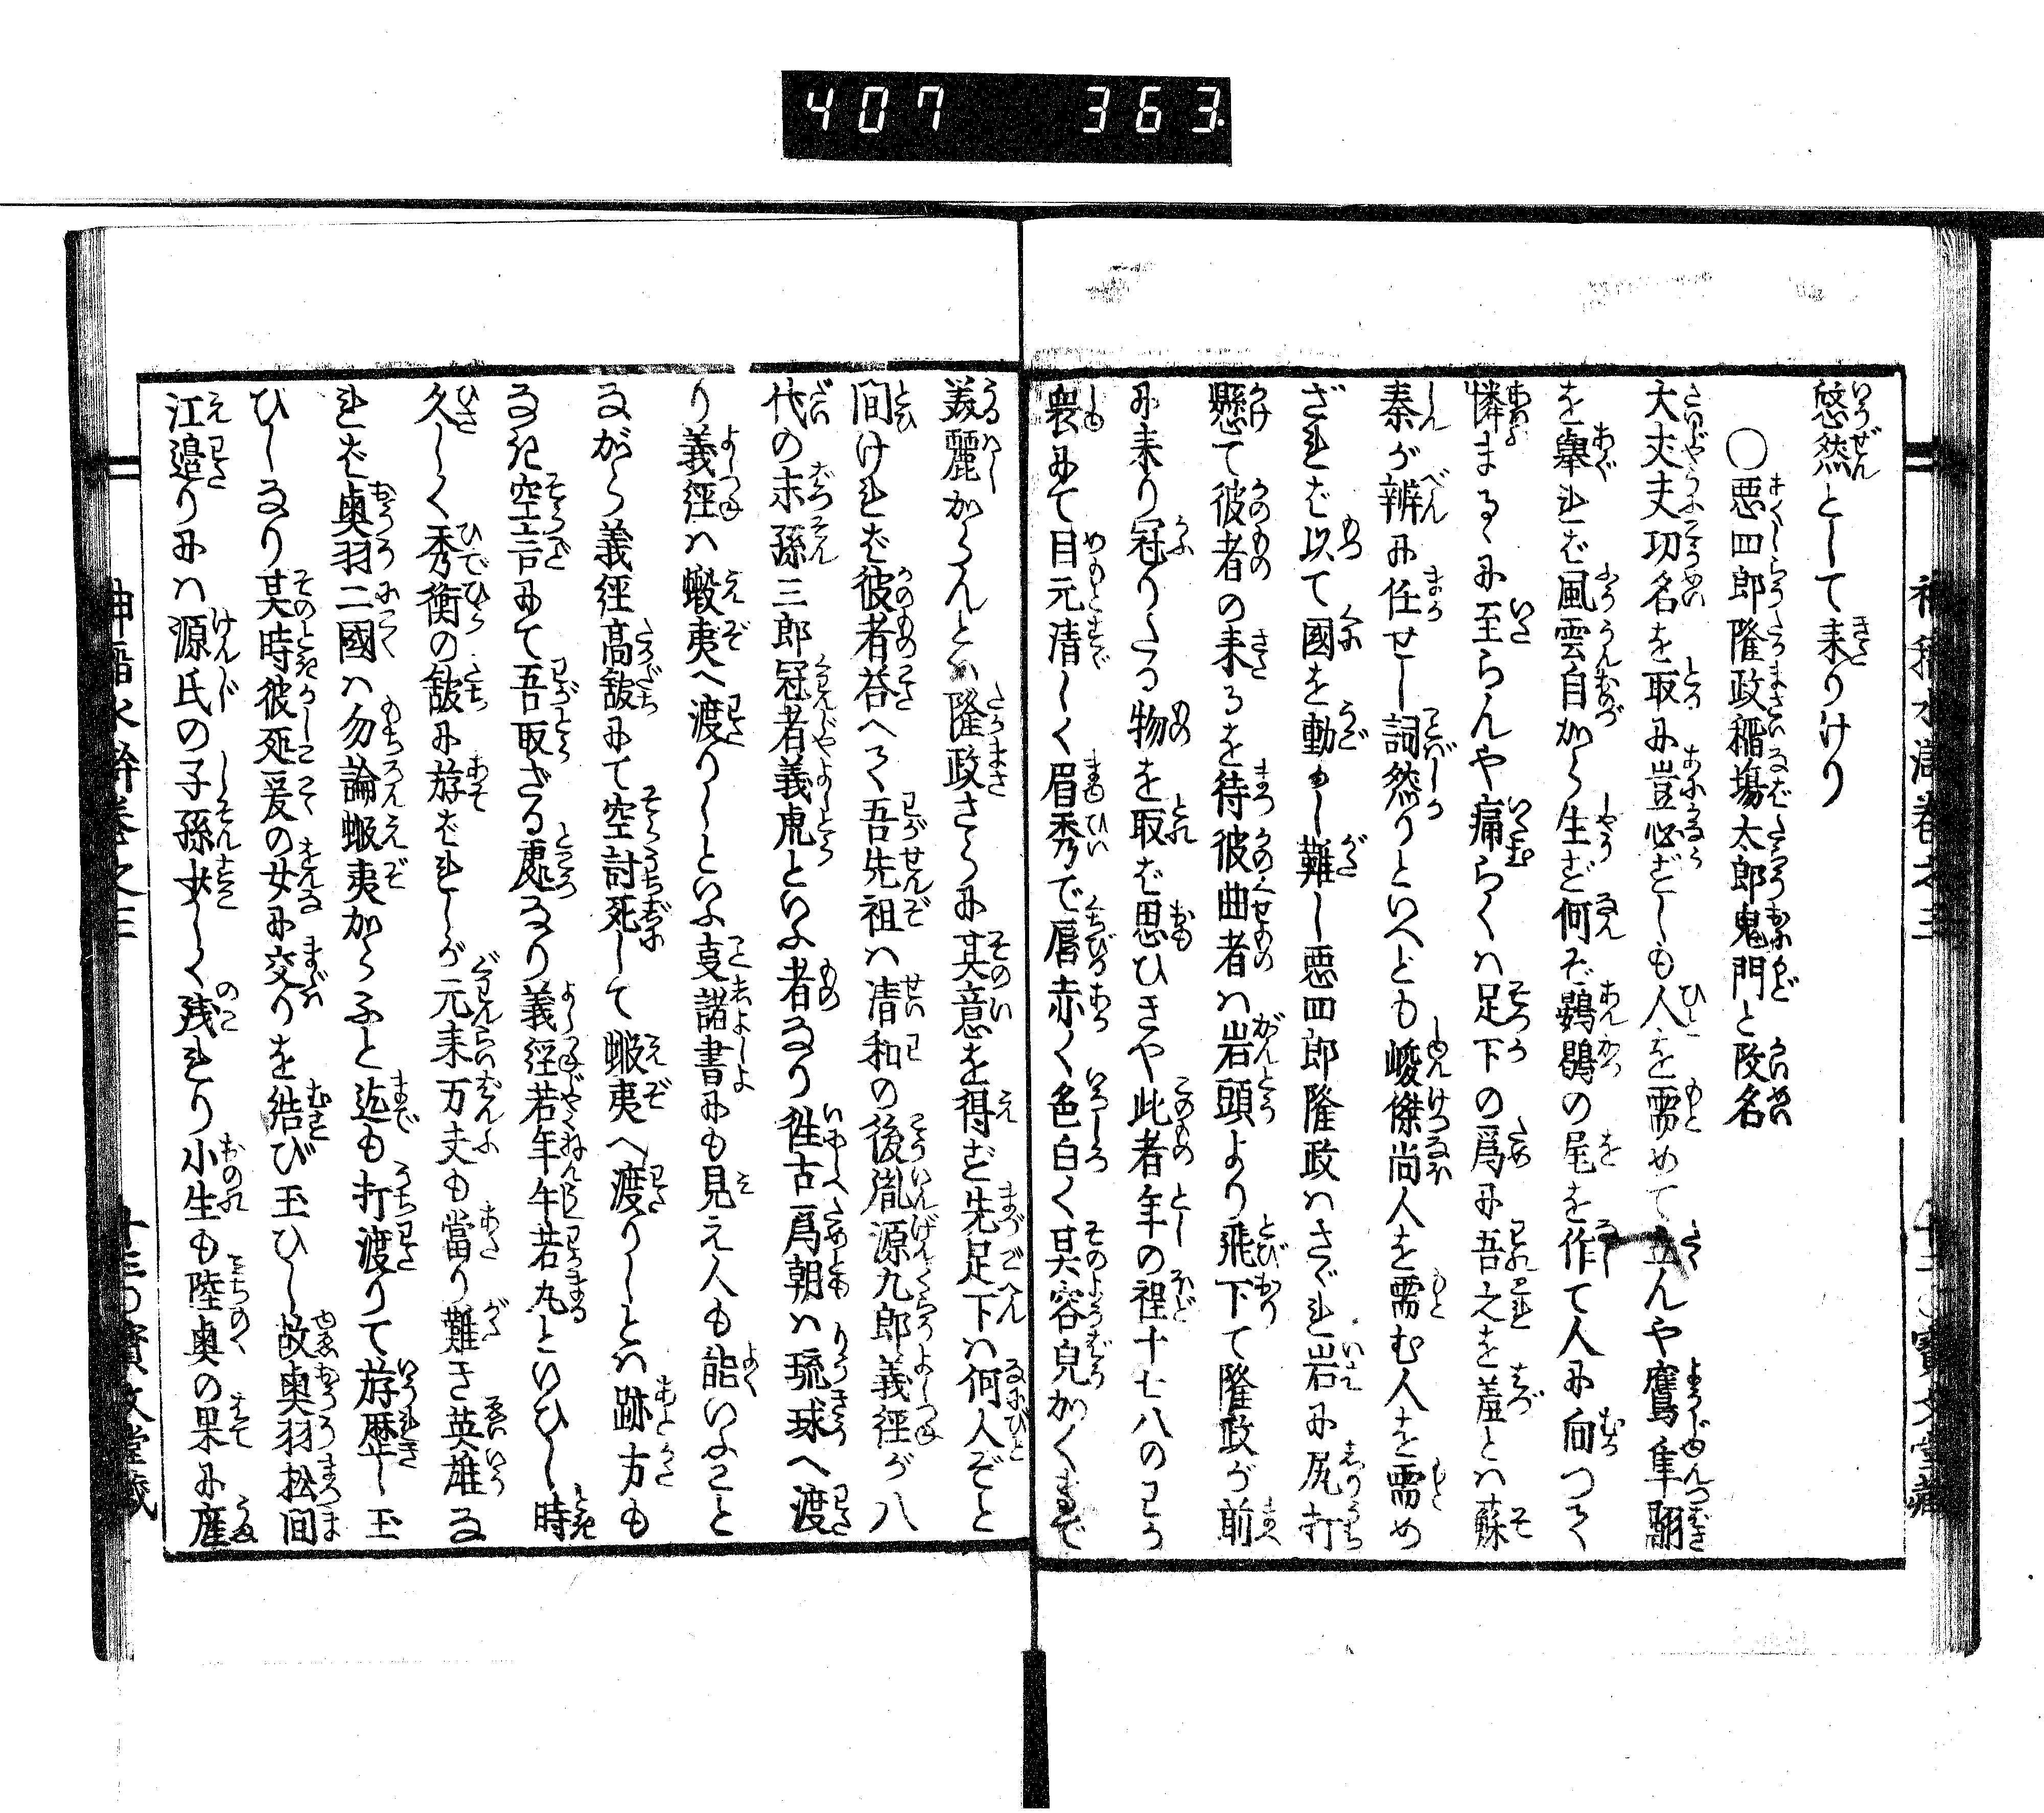 407 363.
悠然として来りけり
○悪四郎隆政稲塲太郎鬼門と改名
大丈夫功名を取に豈必ずしも人を需めて立んや鷹隼翮
を擧れば風雲自から生ず何ぞ鷃鶡の尾を作て人に向つて
憐まるゝに至らんや痛らくは足下の爲に吾之を羞とは蘇
秦が辨に任せし詞然りといへども峻傑尚人を需む人を需め
ざれば以て國を動かし難し悪四郎隆政はさゞれ岩に尻打
懸て彼者の来るを待彼曲者は岩頭より飛下て隆政が前
に来り冠りたる物を取ば思ひきや此者年の程十七八のわつ
喪にて目元清しく眉秀で唇赤く色白く其容皃かくまで
美麗からんとは隆政さらに其意を得ず先足下は何人ぞと
問けれバ彼者荅へて吾先祖は清和の後胤源九郎義經が八
代の末孫三郎冠者義虎といふ者なり徃古爲朝は琉球へ渡
り義經は蝦夷へ渡りしといふ叓諸書にも見え人も能いふこと
ながら義經高舘にて空討死して蝦夷へ渡りしとは跡方も
なき空言にて吾取ざる處なり義經若年牛若丸といひし時
久しく秀衡の舘に游ばれしが元来万夫も當り難き英雄な
れば奥羽二國は勿論蝦夷からふと迄も打渡りて游歴し玉
ひしなり其時彼処爰の女に交りを結び玉ひし故奥羽松間
江邉りには源氏の子孫女〻しく残れり小生も陸奥の果に産